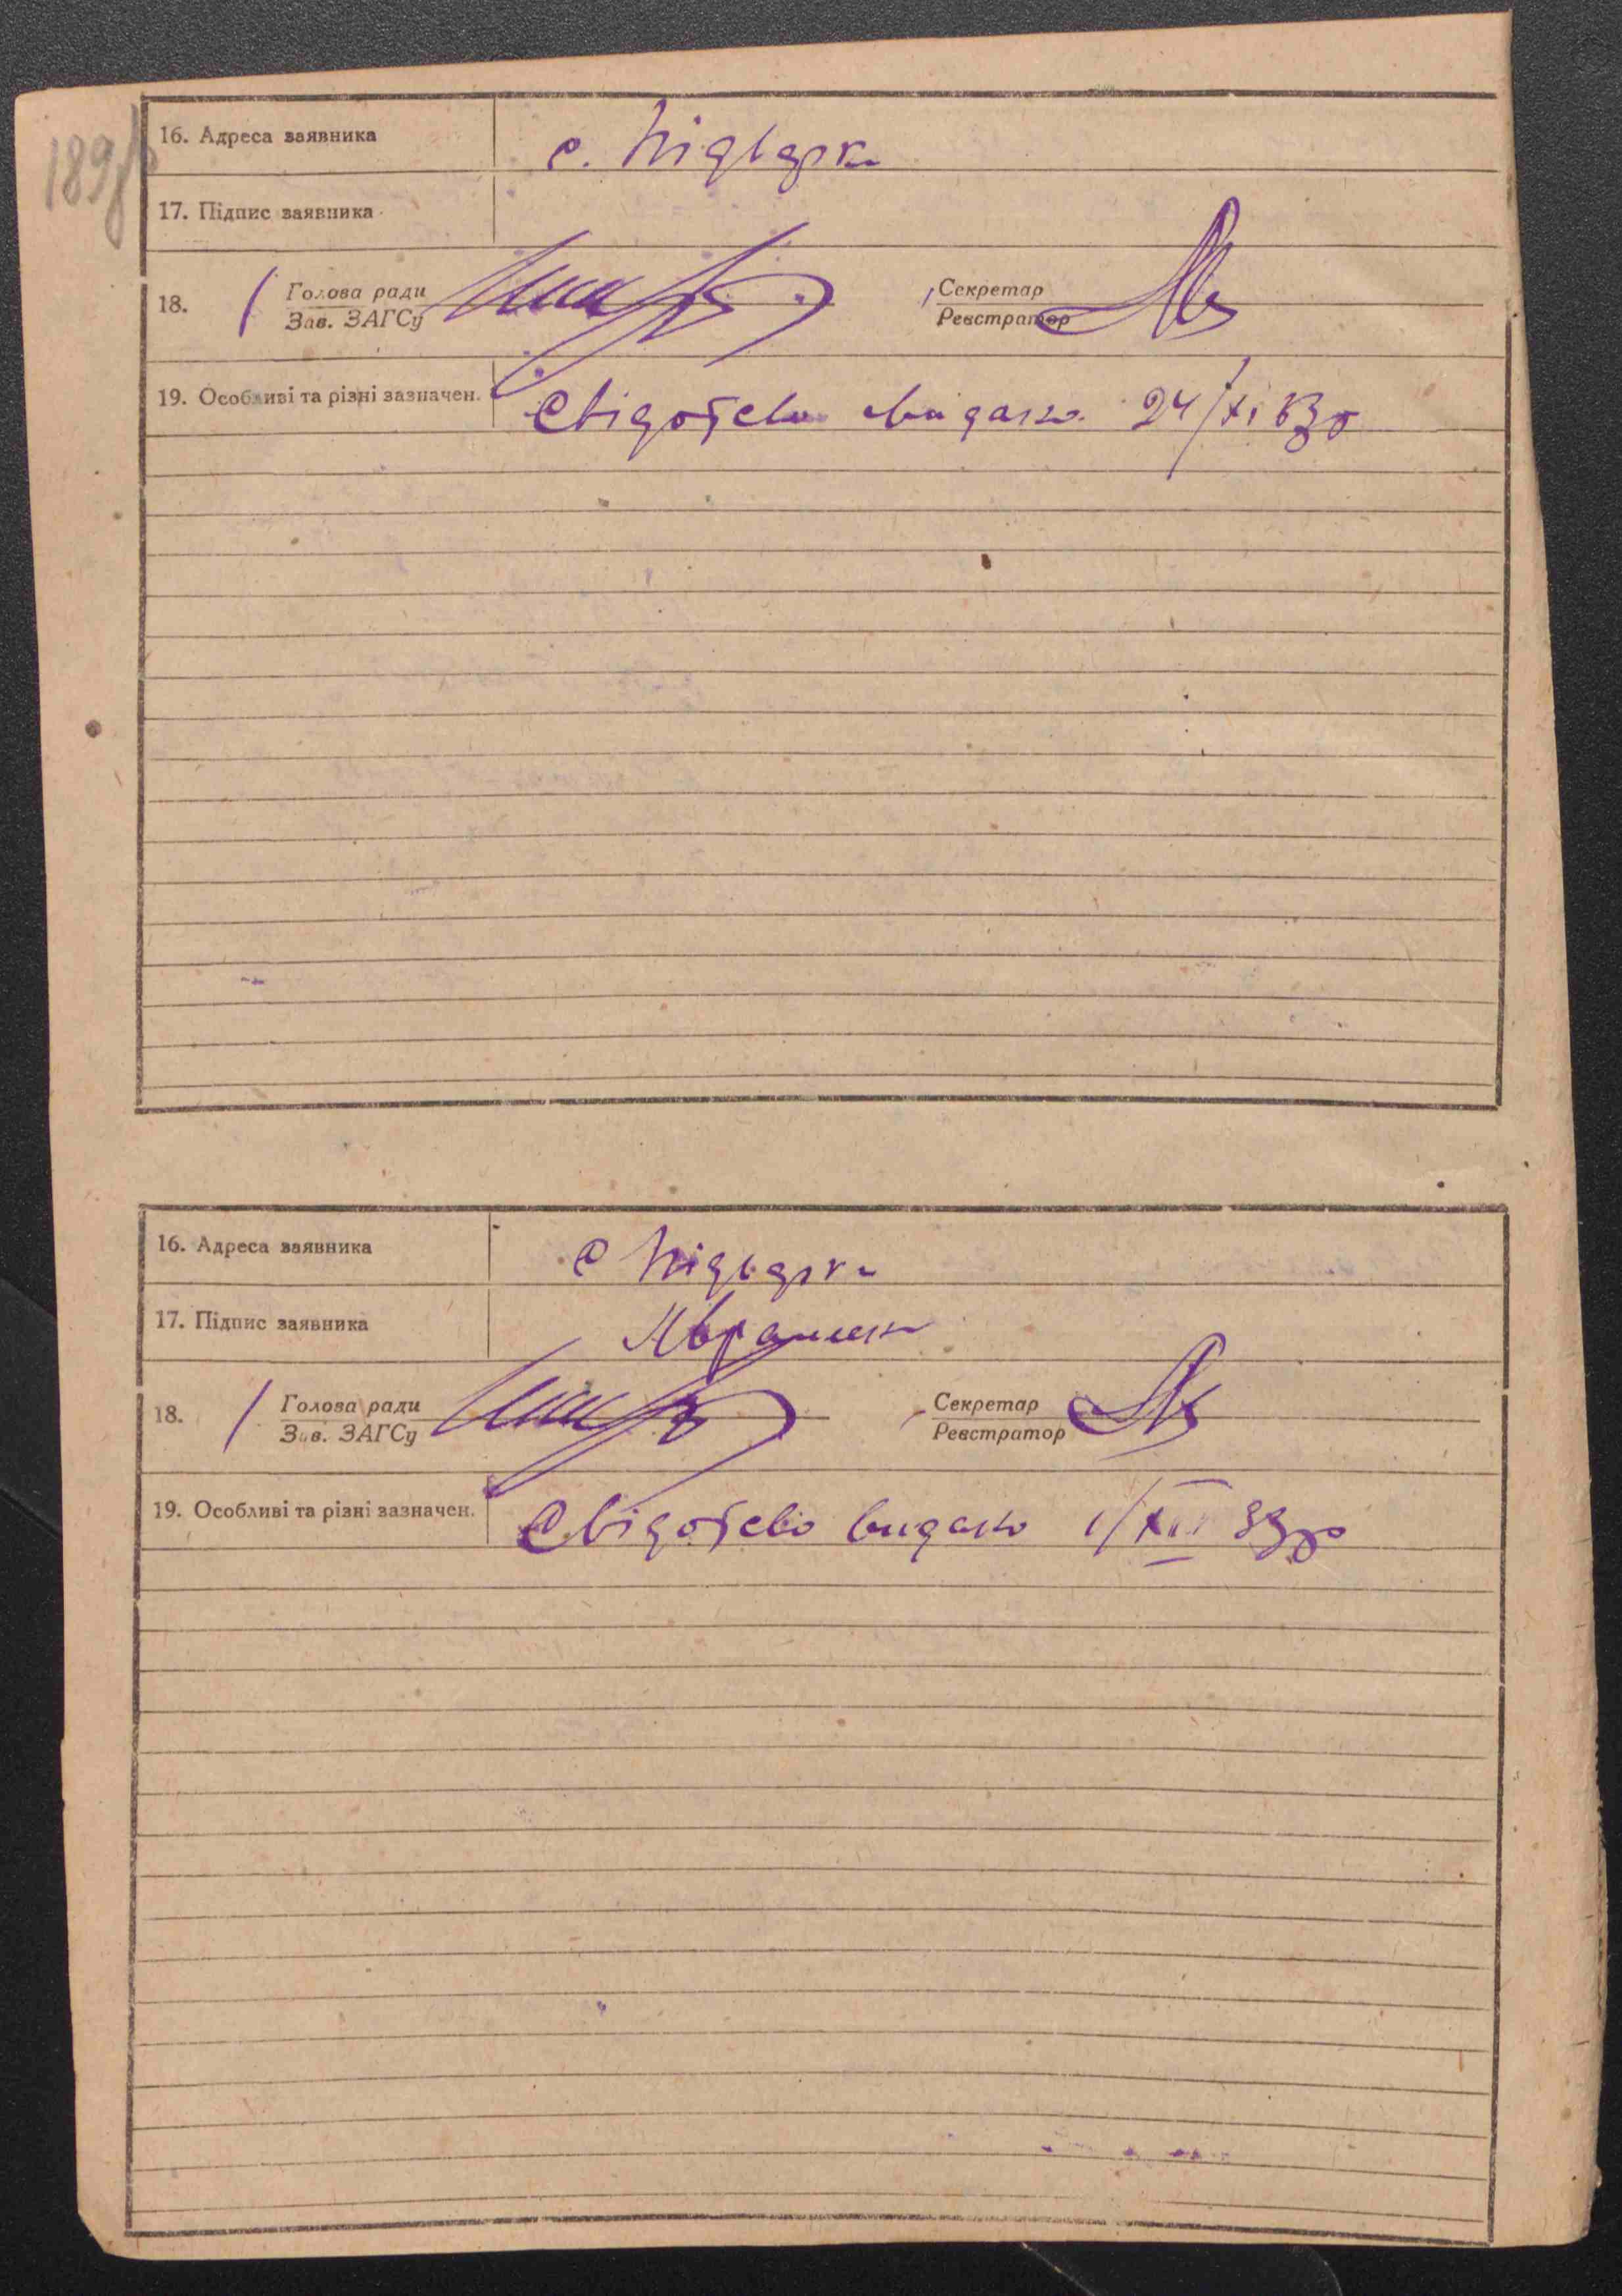 16. Адреса заявника
с. Підварки
17. Підпис заявника
18.
Голова ради
Зав. ЗАГСу
Секретар
Реєстратор
19. Особливі та різні зазначен.
Свідотсво видано 24/XI 33 р
16. Адреса заявника
с Підварки
17. Підпис заявника
18.
Голова ради
Зав. ЗАГСу
Секретар
Реєстратор
19. Особливі та різні зазначен.
Свідотсво видано 1/XII 33 р